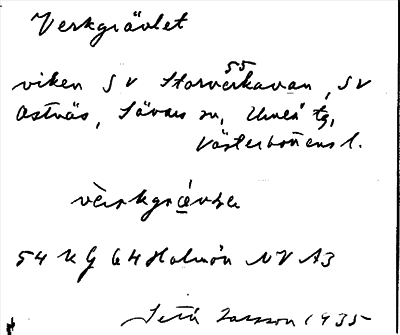 Verkgrävlet
55
viken S V Storverkavan, SV
Ostnäs, Sävars sn, Umeå tg,
Västerbottens l.
vèrkgrá̱vlɛ
54 K g 64 Holmön NV A3
Seth Larsson 1935